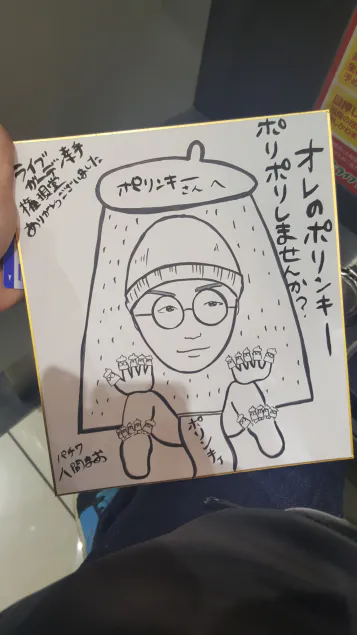 オレのポリンキー
ポリポリしませんか?
ライブ
ガーデン幸手
権現堂
ありがとうございました
ポリンキー
さんへ
ポリンキー
パチワ
人間まお